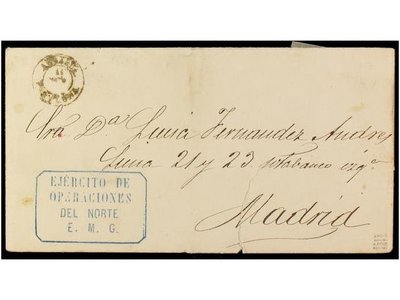 Sra Dª Luisa Fernandez Andres
Luna 21 y 23
Madrid
EJÉRCITO DE
OPERACIONES
DEL NORTE
E. M. G.